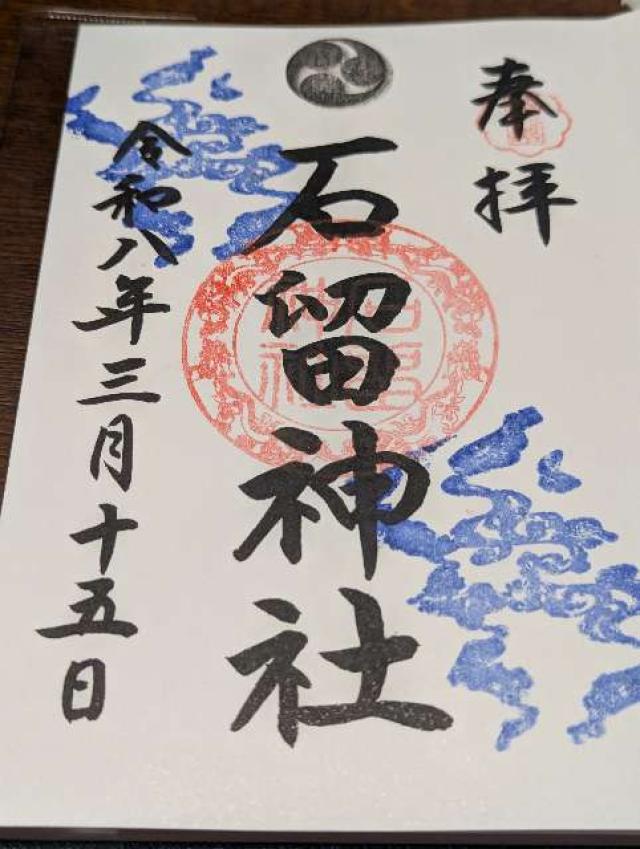 奉拝
石留神社
令和八年三月十五日